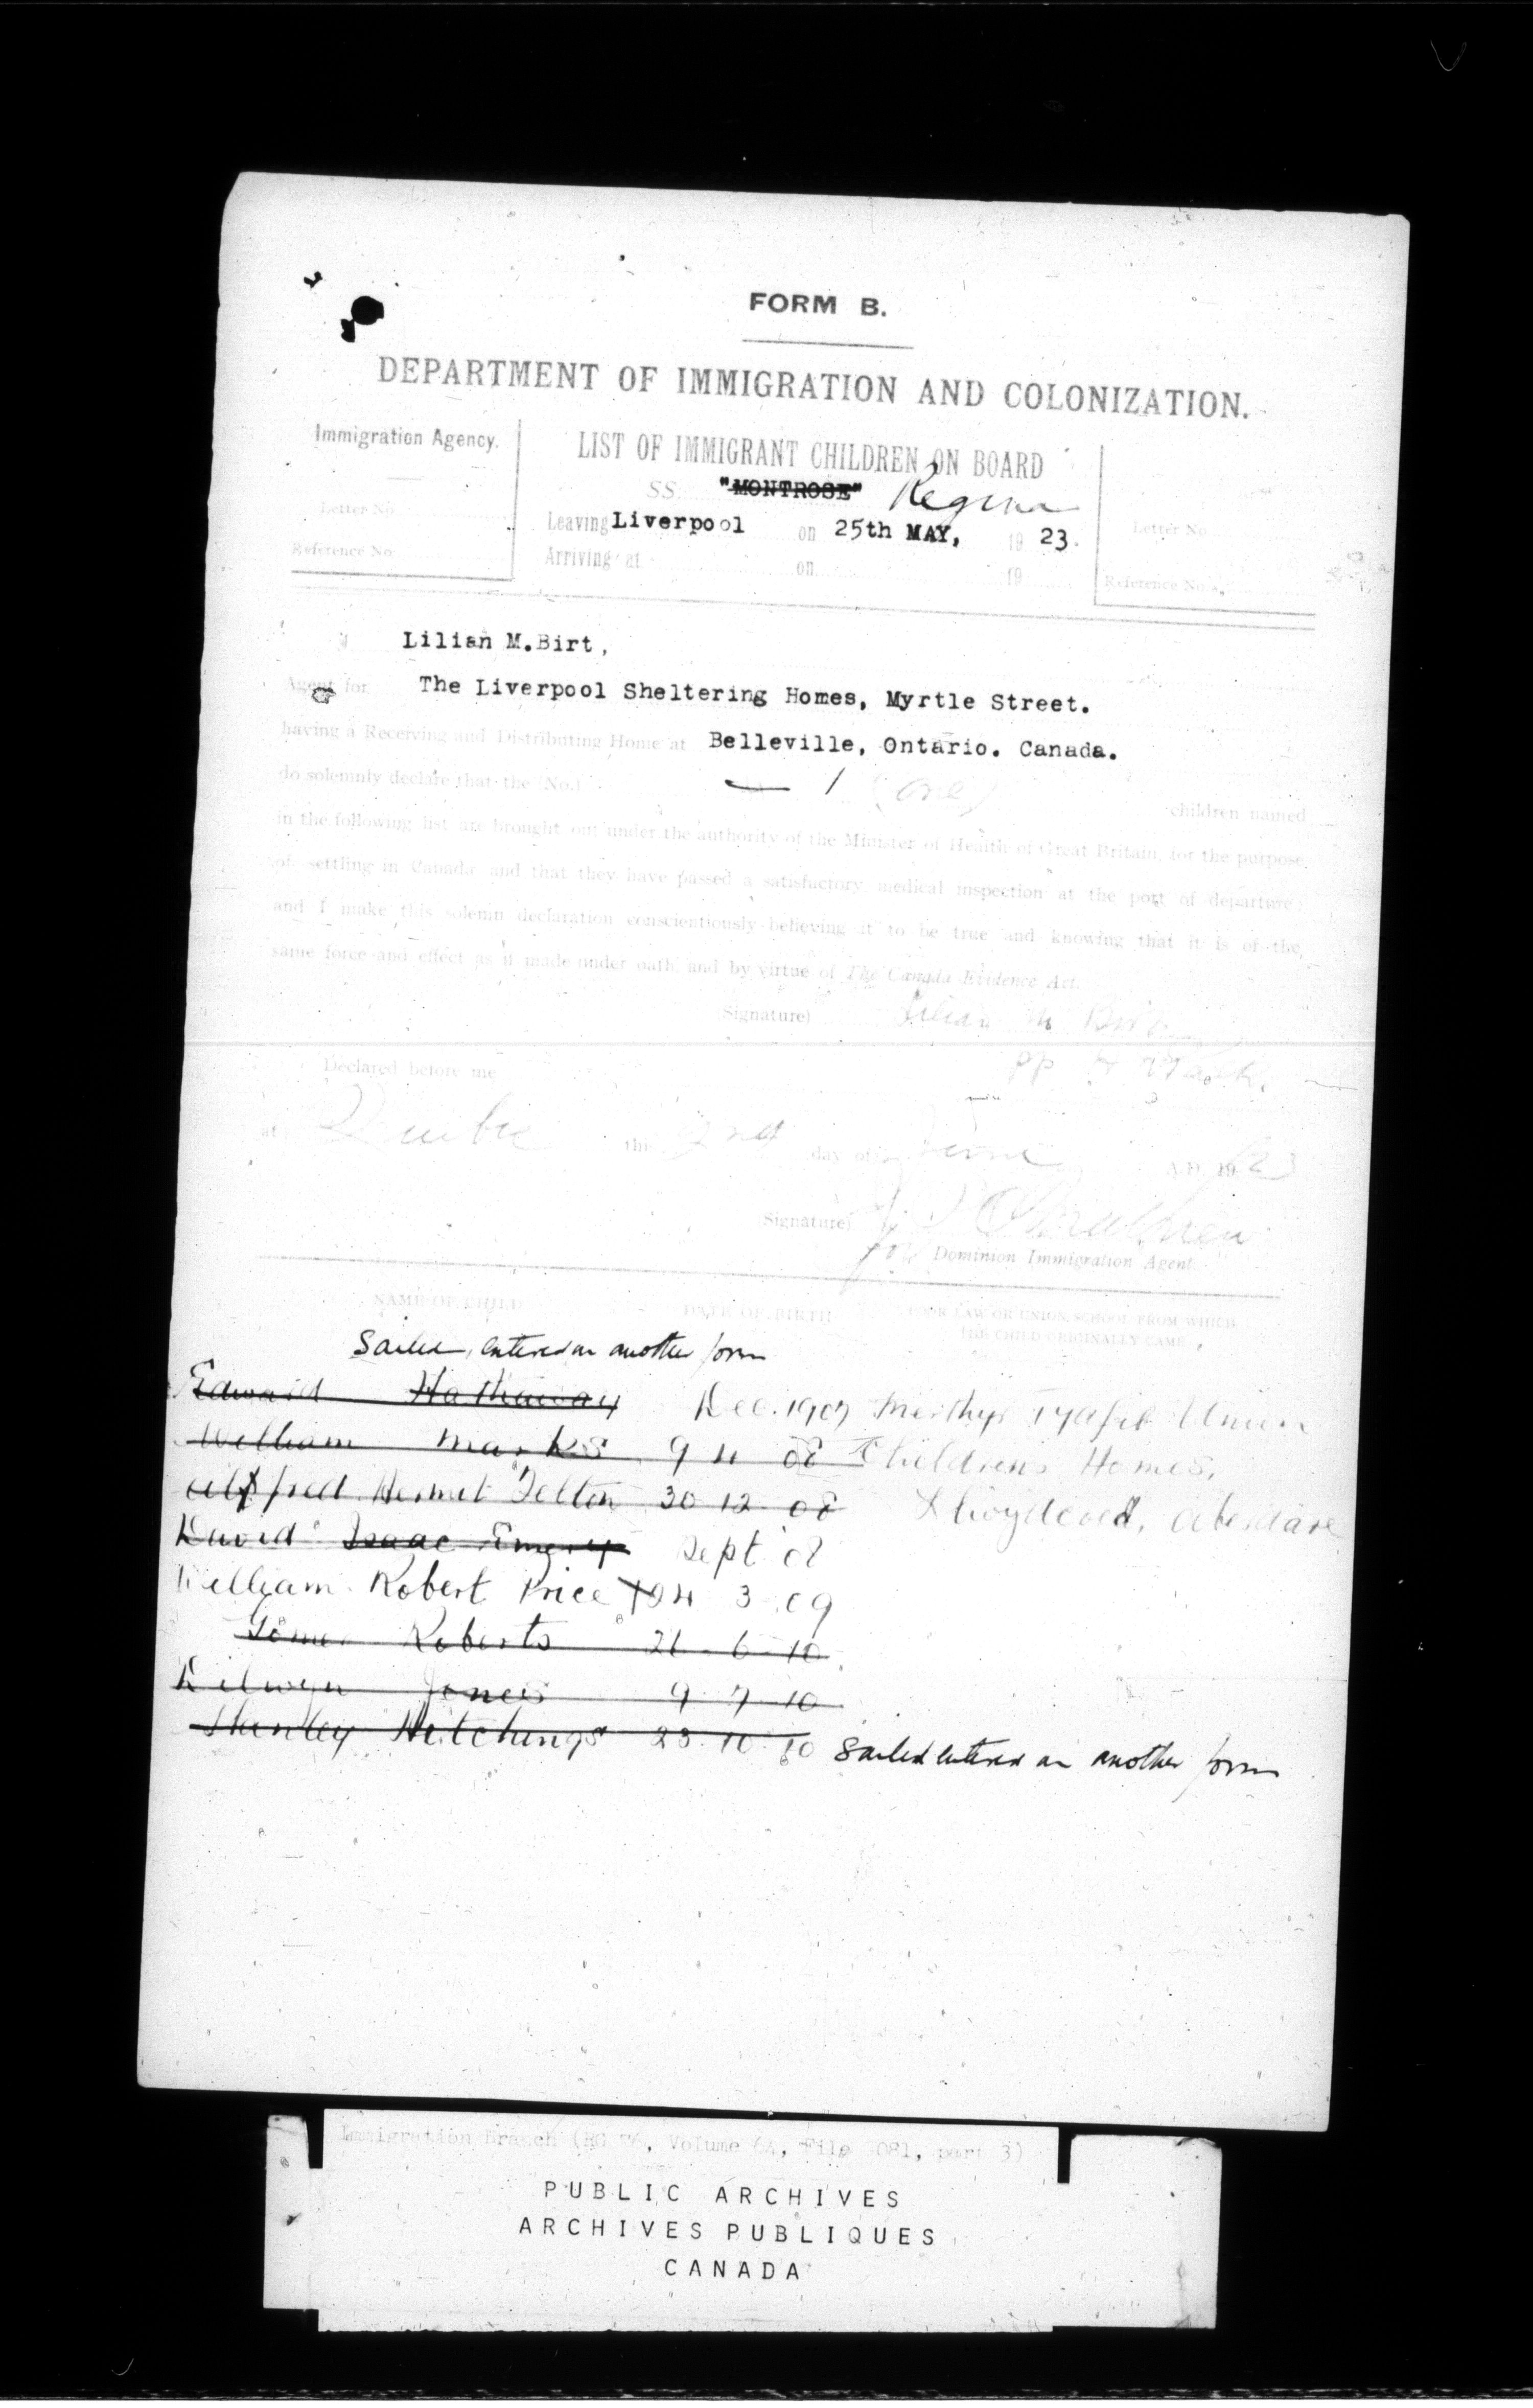 FORM B.
DEPARTMENT OF IMMIGRATION AND COLONIZATION.
Immigration Agency.
LIST OF IMMIGRANT CHILDREN ON BOARD
SS "MONTROSE" Regina
Letter No.
Leaving Liverpool on 25th MAY, 1923.
Letter No.
Reference No.
Arriving at on 19
Reference No.
Lilian M.Birt,
Agent for The Liverpool Sheltering Homes, Myrtle Street.
having a Receiving and Distributing Home at Belleville, Ontario. Canada.
do solemnly declare that the (No.) 1 (one) children named
in the following list are brought out under the authority of the Minister of Health of Great Britain, for the purpose
of settling in Canada and that they have passed a satisfactory medical inspection at the port of departure;
and I make this solemn declaration conscientiously believing it to be true and knowing that it is of the
same force and effect as if made under oath, and by virtue of The Canada Evidence Act.
(Signature) Lilian M Birt
pp
Declared before me
at Quebec this 2nd day of June A.D. 1923
(Signature)
for Dominion Immigration Agent.
NAME OF CHILD DATE OF BIRTH POOR LAW OR UNION SCHOOL FROM WHICH
THE CHILD ORIGINALLY CAME
Sailed, entered on another form
Edward Hathaway Dec. 1907 Merthyr Tydfil Union
William Marks 9 11 08 Childrens Homes,
Alfred Telton 30 12 08 Llwydcoed, Aberdare
David Isaac Emery Sept 08
William Robert Price X 24 3 09
Gomer Roberts 21 6 10
Dilwyn Jones 9 7 10
Stanley Hitchings 23 10 10 Sailed entered on another form
Immigration Branch (RG 76, Volume 64, File 3081, part 3)
PUBLIC ARCHIVES
ARCHIVES PUBLIQUES
CANADA